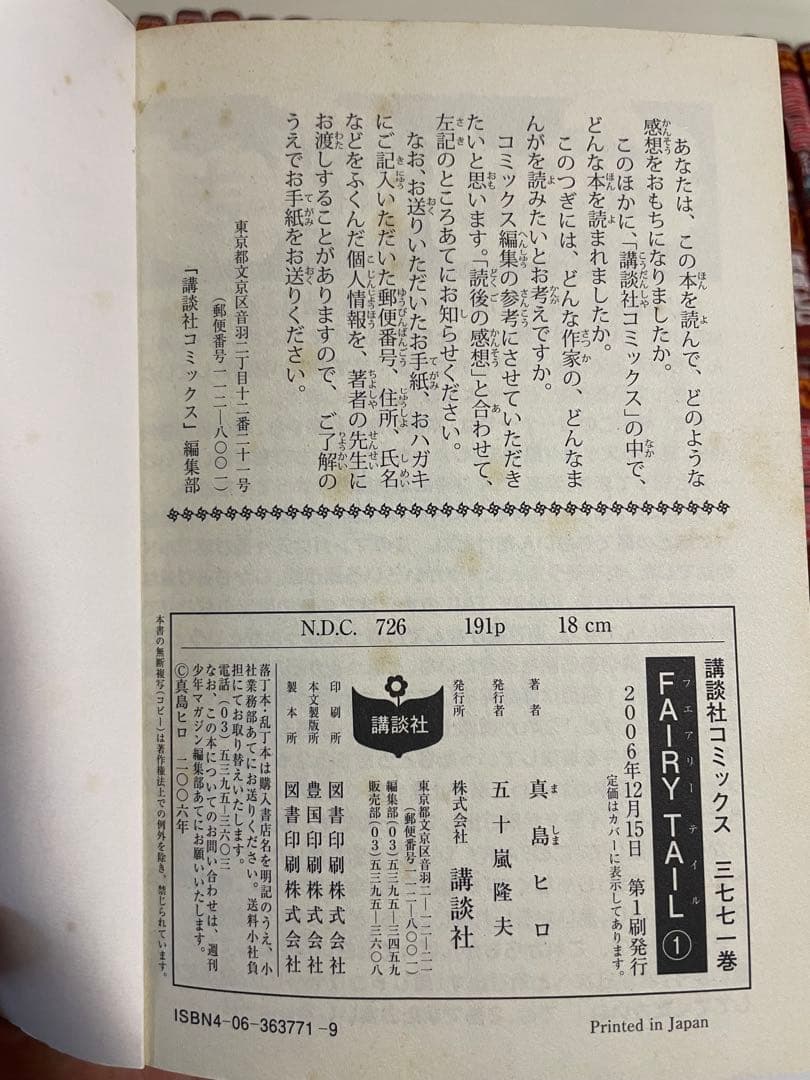 あなたは、この本を読んで、どのような
感想をおもちになりましたか。
このほかに、「講談社コミックス」の中で、
どんな本を読まれましたか。
このつぎには、どんな作家の、どんなま
んがを読みたいとお考えですか。
コミックス編集の参考にさせていただき
たいと思います。「読後の感想」と合わせて、
左記のところあてにお知らせください。
なお、お送りいただいたお手紙、おハガキ
にご記入いただいた郵便番号、住所、氏名
などをふくんだ個人情報を、著者の先生に
お渡しすることがありますので、ご了解の
うえでお手紙をお送りください。
東京都文京区音羽二丁目十二番二十一号
(郵便番号一一二―八〇〇一)
「講談社コミックス」編集部
N.D.C. 726 191p 18 cm
講談社コミックス 三七七一巻
FAIRY TAIL ①
フェアリーテイル
2006年12月15日 第1刷発行
定価はカバーに表示してあります。
著者 真島ヒロ
発行者 五十嵐隆夫
発行所 株式会社 講談社
東京都文京区音羽二―一二―二一
(郵便番号一一二―八〇〇一)
編集部(03)五三九五―三四五九
販売部(03)五三九五―三六〇八
講談社
印刷所 図書印刷株式会社
本文製版所 豊国印刷株式会社
製本所 図書印刷株式会社
落丁本・乱丁本は購入書店名を明記のうえ、小
社業務部あてにお送りください。送料小社負
担にてお取り替えいたします。
電話(03)五三九五―三六〇三
なお、この本についてのお問い合わせは、週刊
少年マガジン編集部あてにお願いいたします。
©真島ヒロ 二〇〇六年
本書の無断複写(コピー)は著作権法上での例外を除き、禁じられています。
ISBN4-06-363771-9
Printed in Japan